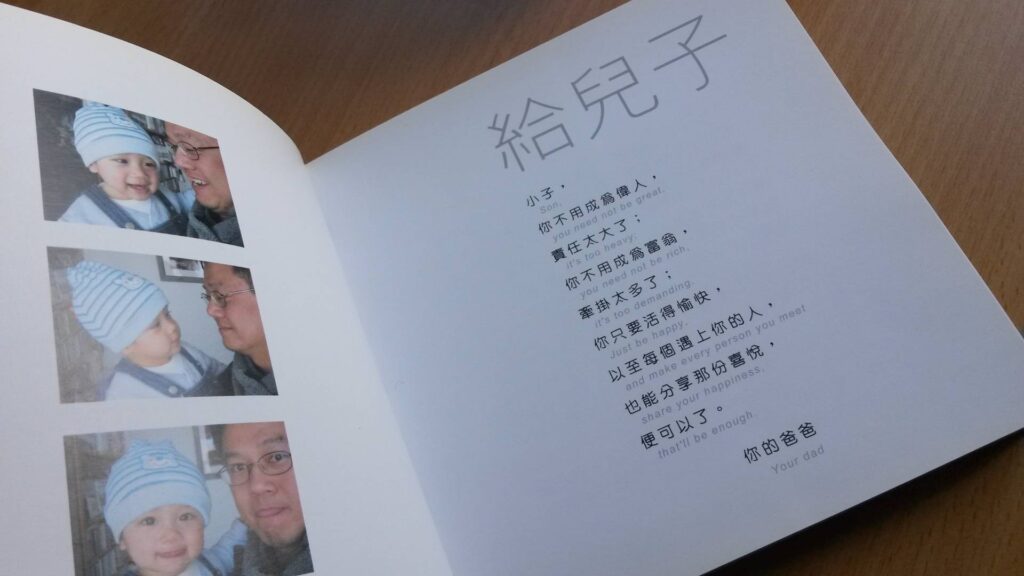 給兒子
小子，
Son,
你不用成為偉人，
you need not be great.
責任太大了；
it's too heavy;
你不用成為富翁，
you need not be rich,
牽掛太多了；
it's too demanding.
你只要活得愉快，
Just be happy,
以至每個遇上你的人，
and make every person you meet
也能分享那份喜悅，
share your happiness,
便可以了。
that'll be enough.
你的爸爸
Your dad